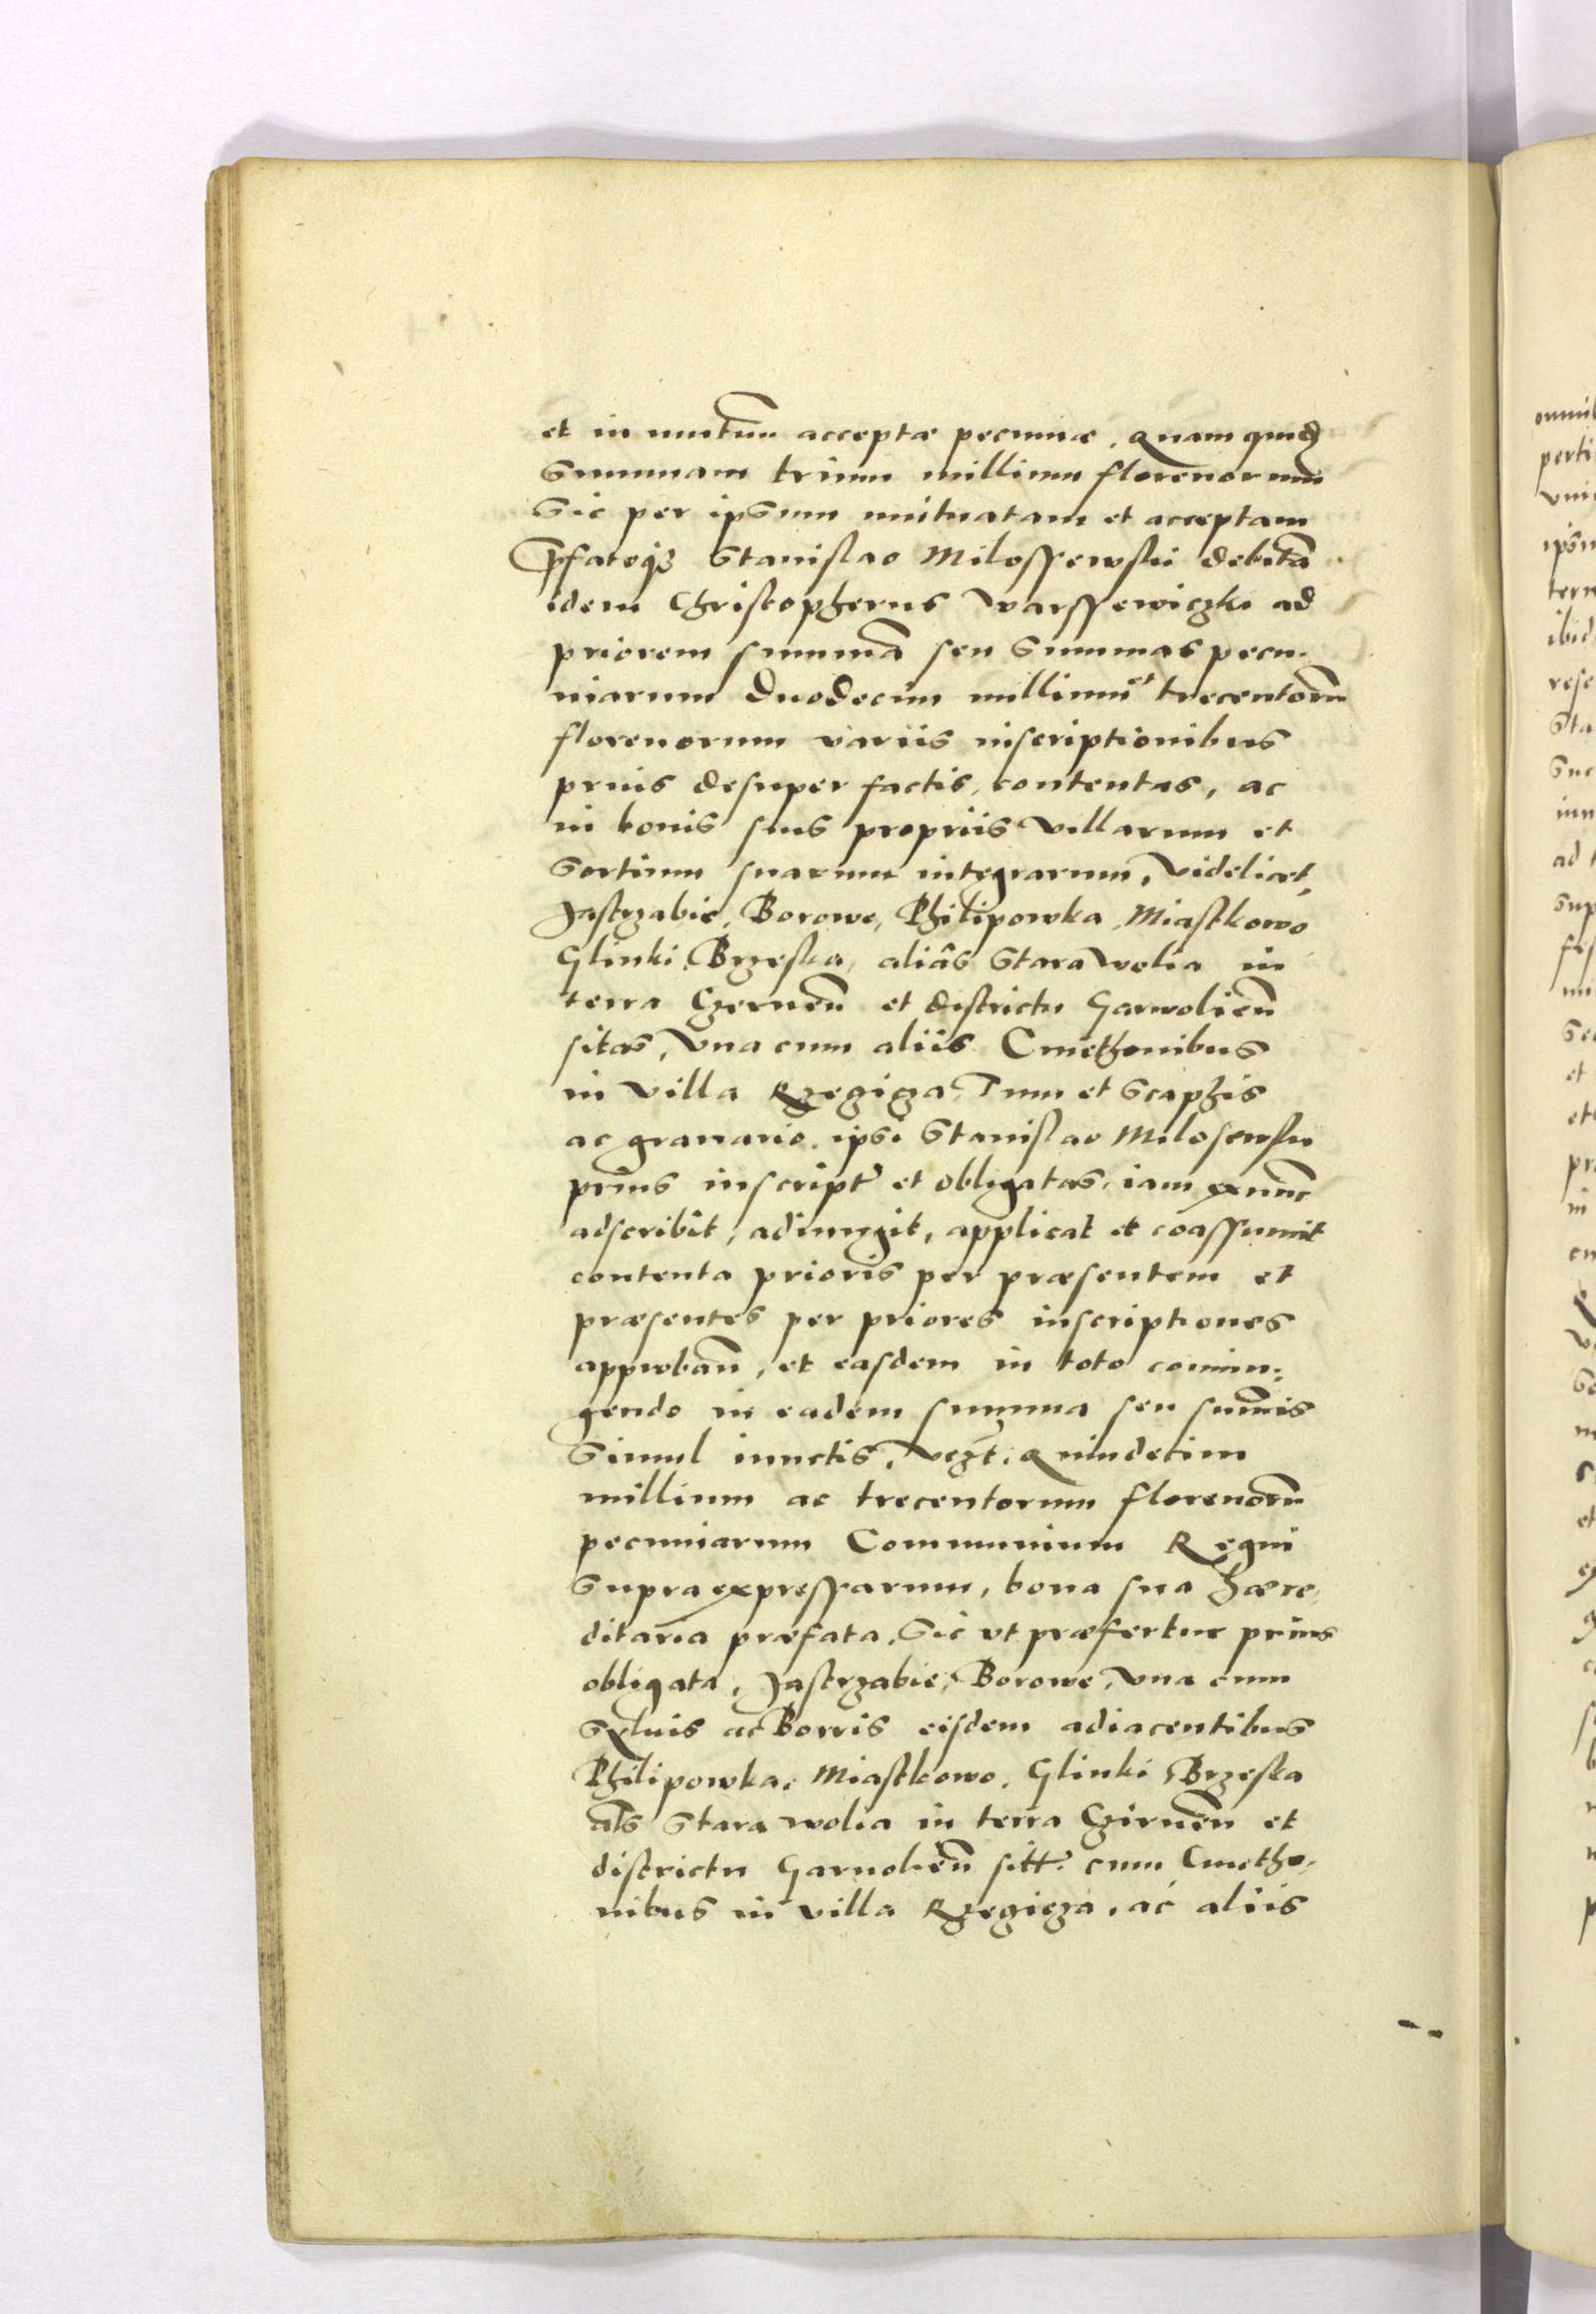 et in mutuum acceptae pecuniae. Quam quidẽ
Summam trium millium florenorum
Sic per ipsum mutuatam et acceptam
p̃fatoqȝ Stanislao Milossewski debitã
idem Christopherus Warssewiczki ad
priorem summã seu Summas pecu-
niarum Duodecim millium et trecentorũ
florenorum variis inscriptionibus
prius desuper factis, contentas, ac
in bonis suis propriis villarum et
Sortium suarum integrarum, videlicet,
Jastrzabie, Borowe, Philipowka, Miastkowo
Glinki, Brzeska, aliâs Stara wolia in
terra Czernen̄ et districtu Garwolien̄
sitas, Vna cum aliis Cmethonibus
in villa Rzegiza, Tum et Scaphis
ac granario, ipsi Stanislao Milosewski
prius inscript̃ et obligatas, iam ex nunc
adscribit, adiungit, applicat et coassumit
contenta prioris per praesentem et
praesentes per priores inscriptiones
approban̄, et easdem in toto coniun-
gendo in eadem summa seu sum̃is
Simul iunctis, vczt, Quindecim
millium ac trecentorum florenorũ
pecuniarum Communium Regni
Supra expressarum, bona sua haere-
ditaria praefata, Sic vt praefertur prius
obligata, Jastrzabie, Borowe, Vna cum
Syluis ac Borris eisdem adiacentibus
Philipowka, Miastkowo, Glinki Brzeska
als̃ Stara wolia in terra Czirnen̄ et
districtu Garwolien̄ sitt̃. cum Cmetho-
nibus in villa Rzegicza, ac aliis